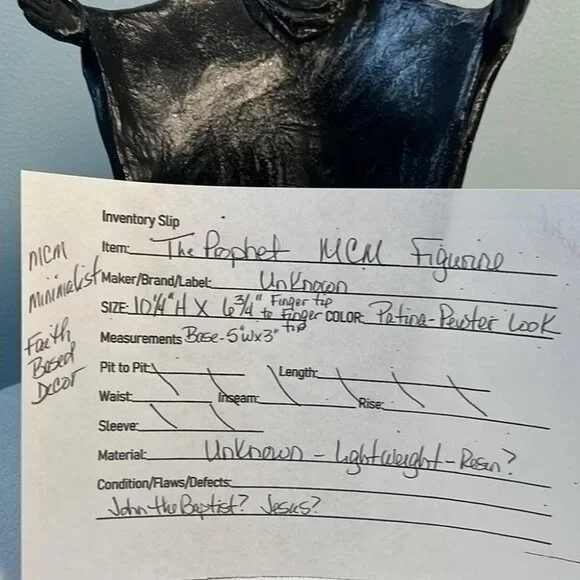 Inventory Slip
Item: The Prophet MCM Figurine
Maker/Brand/Label: Unknown
SIZE: 10 1/4" H X 6 3/4" Finger tip to Finger tip COLOR: Patina-Pewter Look
Measurements Base-5"Wx3"
Pit to Pit: Length:
Waist: Inseam: Rise:
Sleeve:
Material: Unknown - Lightweight - Resin?
Condition/Flaws/Defects:
John the Baptist? Jesus?
MCM
Minimalist
Faith
Based
Decor